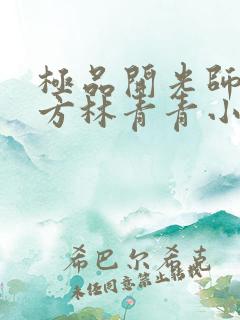 極品開光師
方林青青小
希巴尔希克
未经同意禁止转载